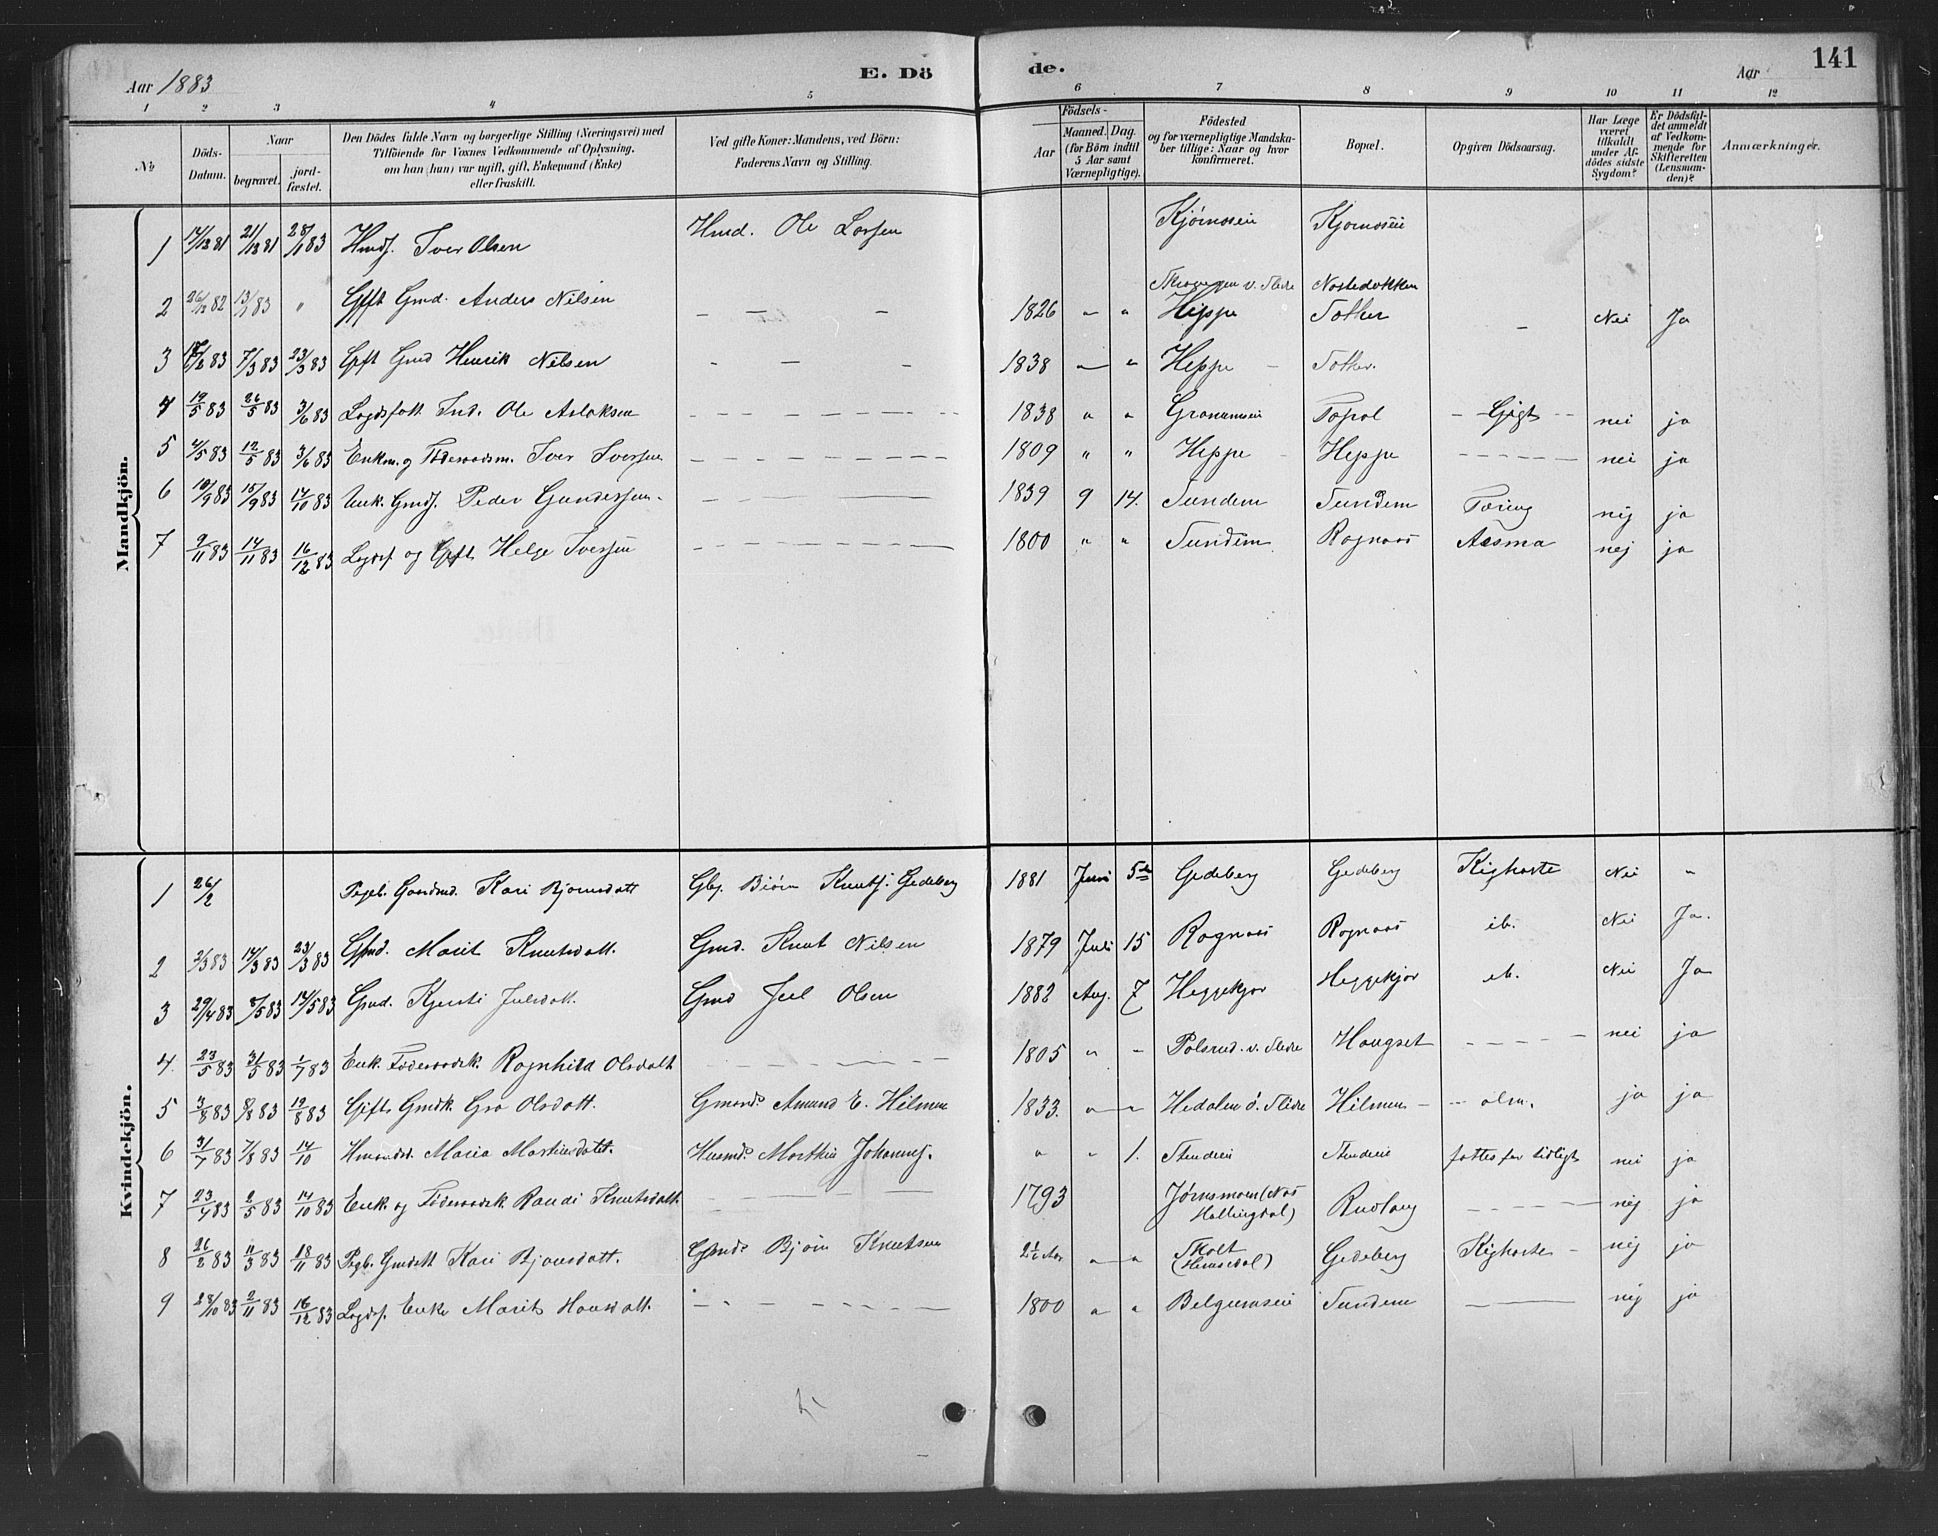 Aar 1883
E. Dö
de.
Aar
141
1 2 3 4 5 6 7 8 9 10 11 12
No
Döds-Datum.
Naar
begravet.
jord-fæstet.
Den Dödes fulde Navn og borgerlige Stilling (Næringsvei) med
Tilföiende for Voxnes Vedkommende af Oplysning,
om han (hun) var ugift, gift, Enkemand (Enke)
eller fraskilt.
Ved gifte Koner: Mandens, ved Börn:
Faderens Navn og Stilling.
Födsels-
Aar
Maaned. Dag.
(for Börn indtil
5 Aar samt
Værnepligtige).
Födested
og for værnepligtige Mandska-
ber tillige: Naar og hvor
konfirmeret.
Bopæl.
Opgiven Dödsaarsag.
Har Læge
været
tilkaldt
under Af-
dödes sidste
Sygdom?
Er Dödsfal-
det anmeldt
af Vedkom-
mende for
Skifteretten
(Lensman-
den)?
Anmærkninger.
Mandkjön.
1 14/12 81 21/12 81 28/1 83 Hmds. Iver Olsen Hmd. Ole Larsen Kjørnoseie Kjørnoseie
2 26/12 82 13/1 83 " Gift Gmd. Anders Nilsen — — - 1826 " " v. Slidre Heppe Nostedokken Tother - Nei Ja
3 83 7/3 83 23/3 83 Gift Gmd Henrik Nilsen - — - 1838 — " Heppe - Tother.
4 19/5 83 26/5 83 3/6 83 Lægdsfatt. Ind. Ole Aslaksen 1838 " " Granumseie Topol - Gigt - nei ja
5 4/5 83 12/5 83 3/6 83 Enkm. og Föderaadsm. Iver Iversen 1809 " " Heppe Heppe nei ja
6 10/9 83 15/9 83 14/10 83 Unk. Gmds. Peder Gundersen. 1839 9 14. Sundem Sundem Tæring nej ja
7 9/11 83 14/11 83 16/12 83 Lægdsf og Gift Helge Iversen 1800 " " Sundem Rognaas Assma nej ja
Kvindekjön.
1 26/2 Pigeb. Kari Bjørnsdatt Gbg. Biørn Knuts. Gedeberg 1881 Juni 5te Gedeberg Gedeberg Kighoste Nei "
2 3/3 83 14/3 83 23/3 83 Gmd. Marit Knutsdatt. Gmd. Knut Nilsen 1879 Juli 15 Rognaas Rognaas ib. Nei Ja.
3 29/4 83 8/5 83 14/5 83 Gmd. Kjersti Juelsdatt. Gmd Juel Olsen 1882 Aug. 7 Heggekjør Heggekjør ib. Nei Ja
4. 23/5 83 31/5 83 1/7 83 Enk. Föderaadsk. Ragnhild Olsdatt 1805 " - Polsrud. v. Slidre Haugset nei ja
5 3/8 83 8/8 83 19/8 83 Gift Gmdk. Gro Olsdatt. Gmand. Amund E. Hilmen 1833. " " Hedalen ö. Slidre Hilmen - ja ja
6 31/7 83 7/8 83 14/10 Hmandsd. Maria Martinsdatt. Husmd. Marthin Johanns. " " 1. Stendeeie Stendeie fødtes for tidligt nei ja
7 23/4 83 2/5 83 14/10 83 Enk. og Föderaadsk Randi Knutsdatt 1793 Jørnsmoen (Næs Hallingdal) Rudlang nej ja
8 26/2 83 11/3 83 18/11 83 Pigb. Gmdatt Kari Bjørnsdatt. Gmd. Bjørn Knutsen " " Skolt (Hemsedal) Gedeberg Kighoste - nej ja
9 28/10 83 2/11 83 16/12 83 Lægdsf. Enke Marit Hansdatt. 1800 " " Belgumseie Sundem nej ja